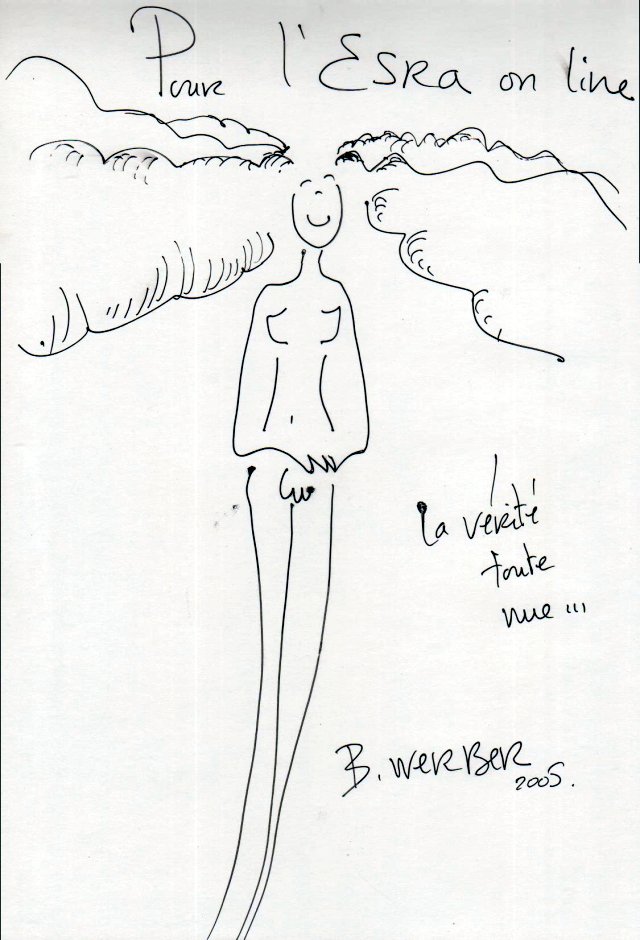 Pour l'Esra on line
La vérité
toute
nue ...
B. Werber
2005.